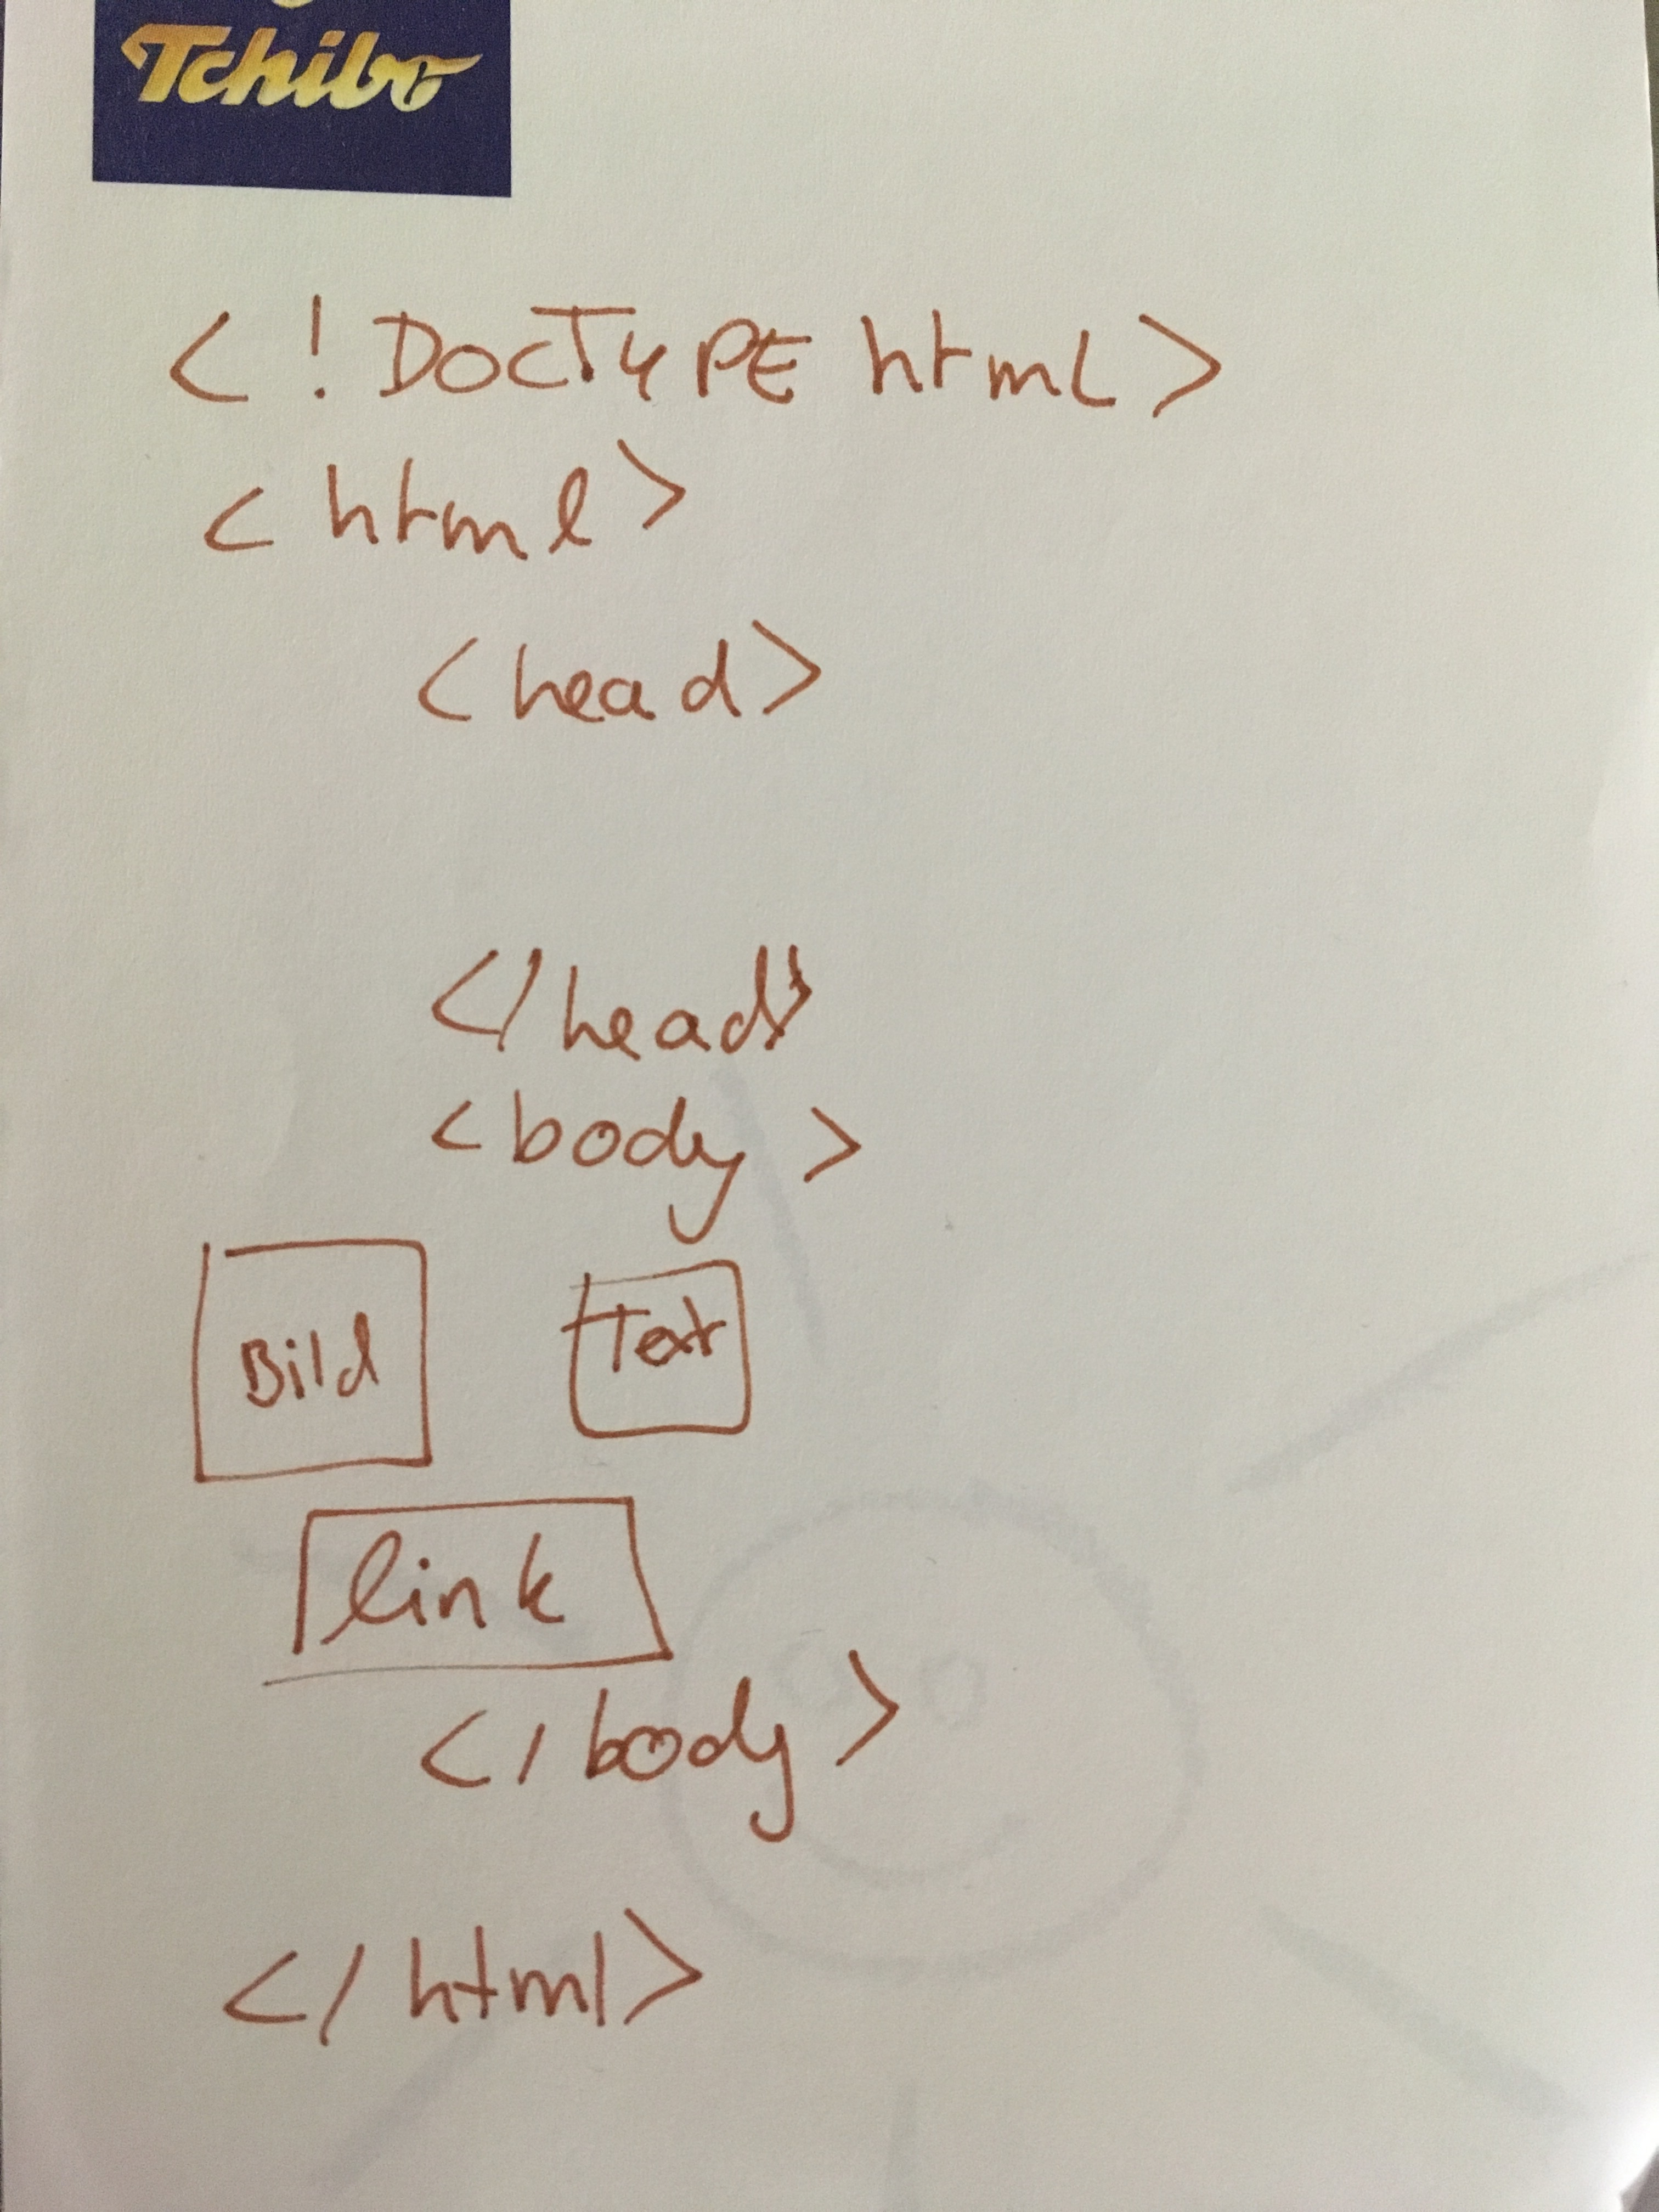 Tchibo
<!DOCTYPE html>
<html>
<head>
</head>
<body>
Bild Text
link
</body>
</html>